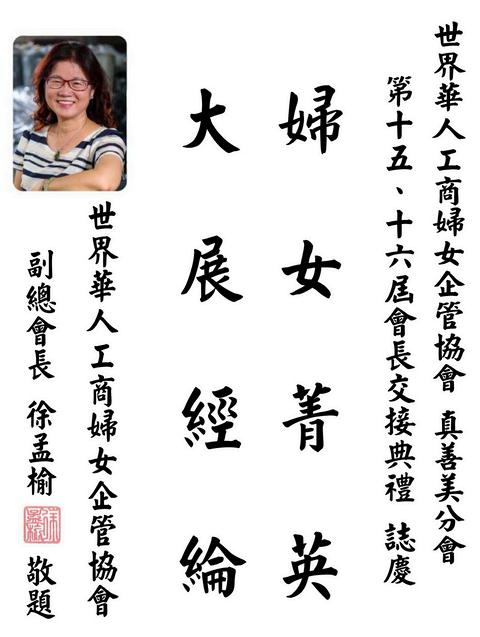 世界華人工商婦女企管協會 真善美分會
第十五、十六屆會長交接典禮 誌慶
婦女菁英
大展經綸
世界華人工商婦女企管協會
副總會長 徐孟榆 敬題